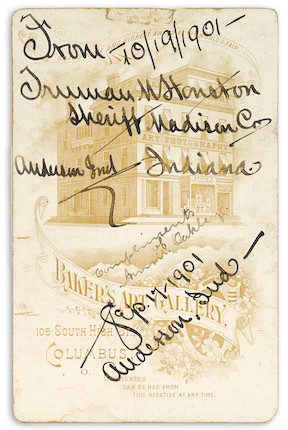 From 10/19/1901-
Truman H Houston
Sheriff Madison Co
ART PHOTOGRAPHY
Anderson Ind Indiana
Compliments
of
Annie Oakley
Sep. 17-1901
Anderson, Ind-
BAKER'S ART GALLERY.
106 SOUTH HIGH
COLUMBUS
O.
CAN BE HAD FROM
THIS NEGATIVE AT ANY TIME.